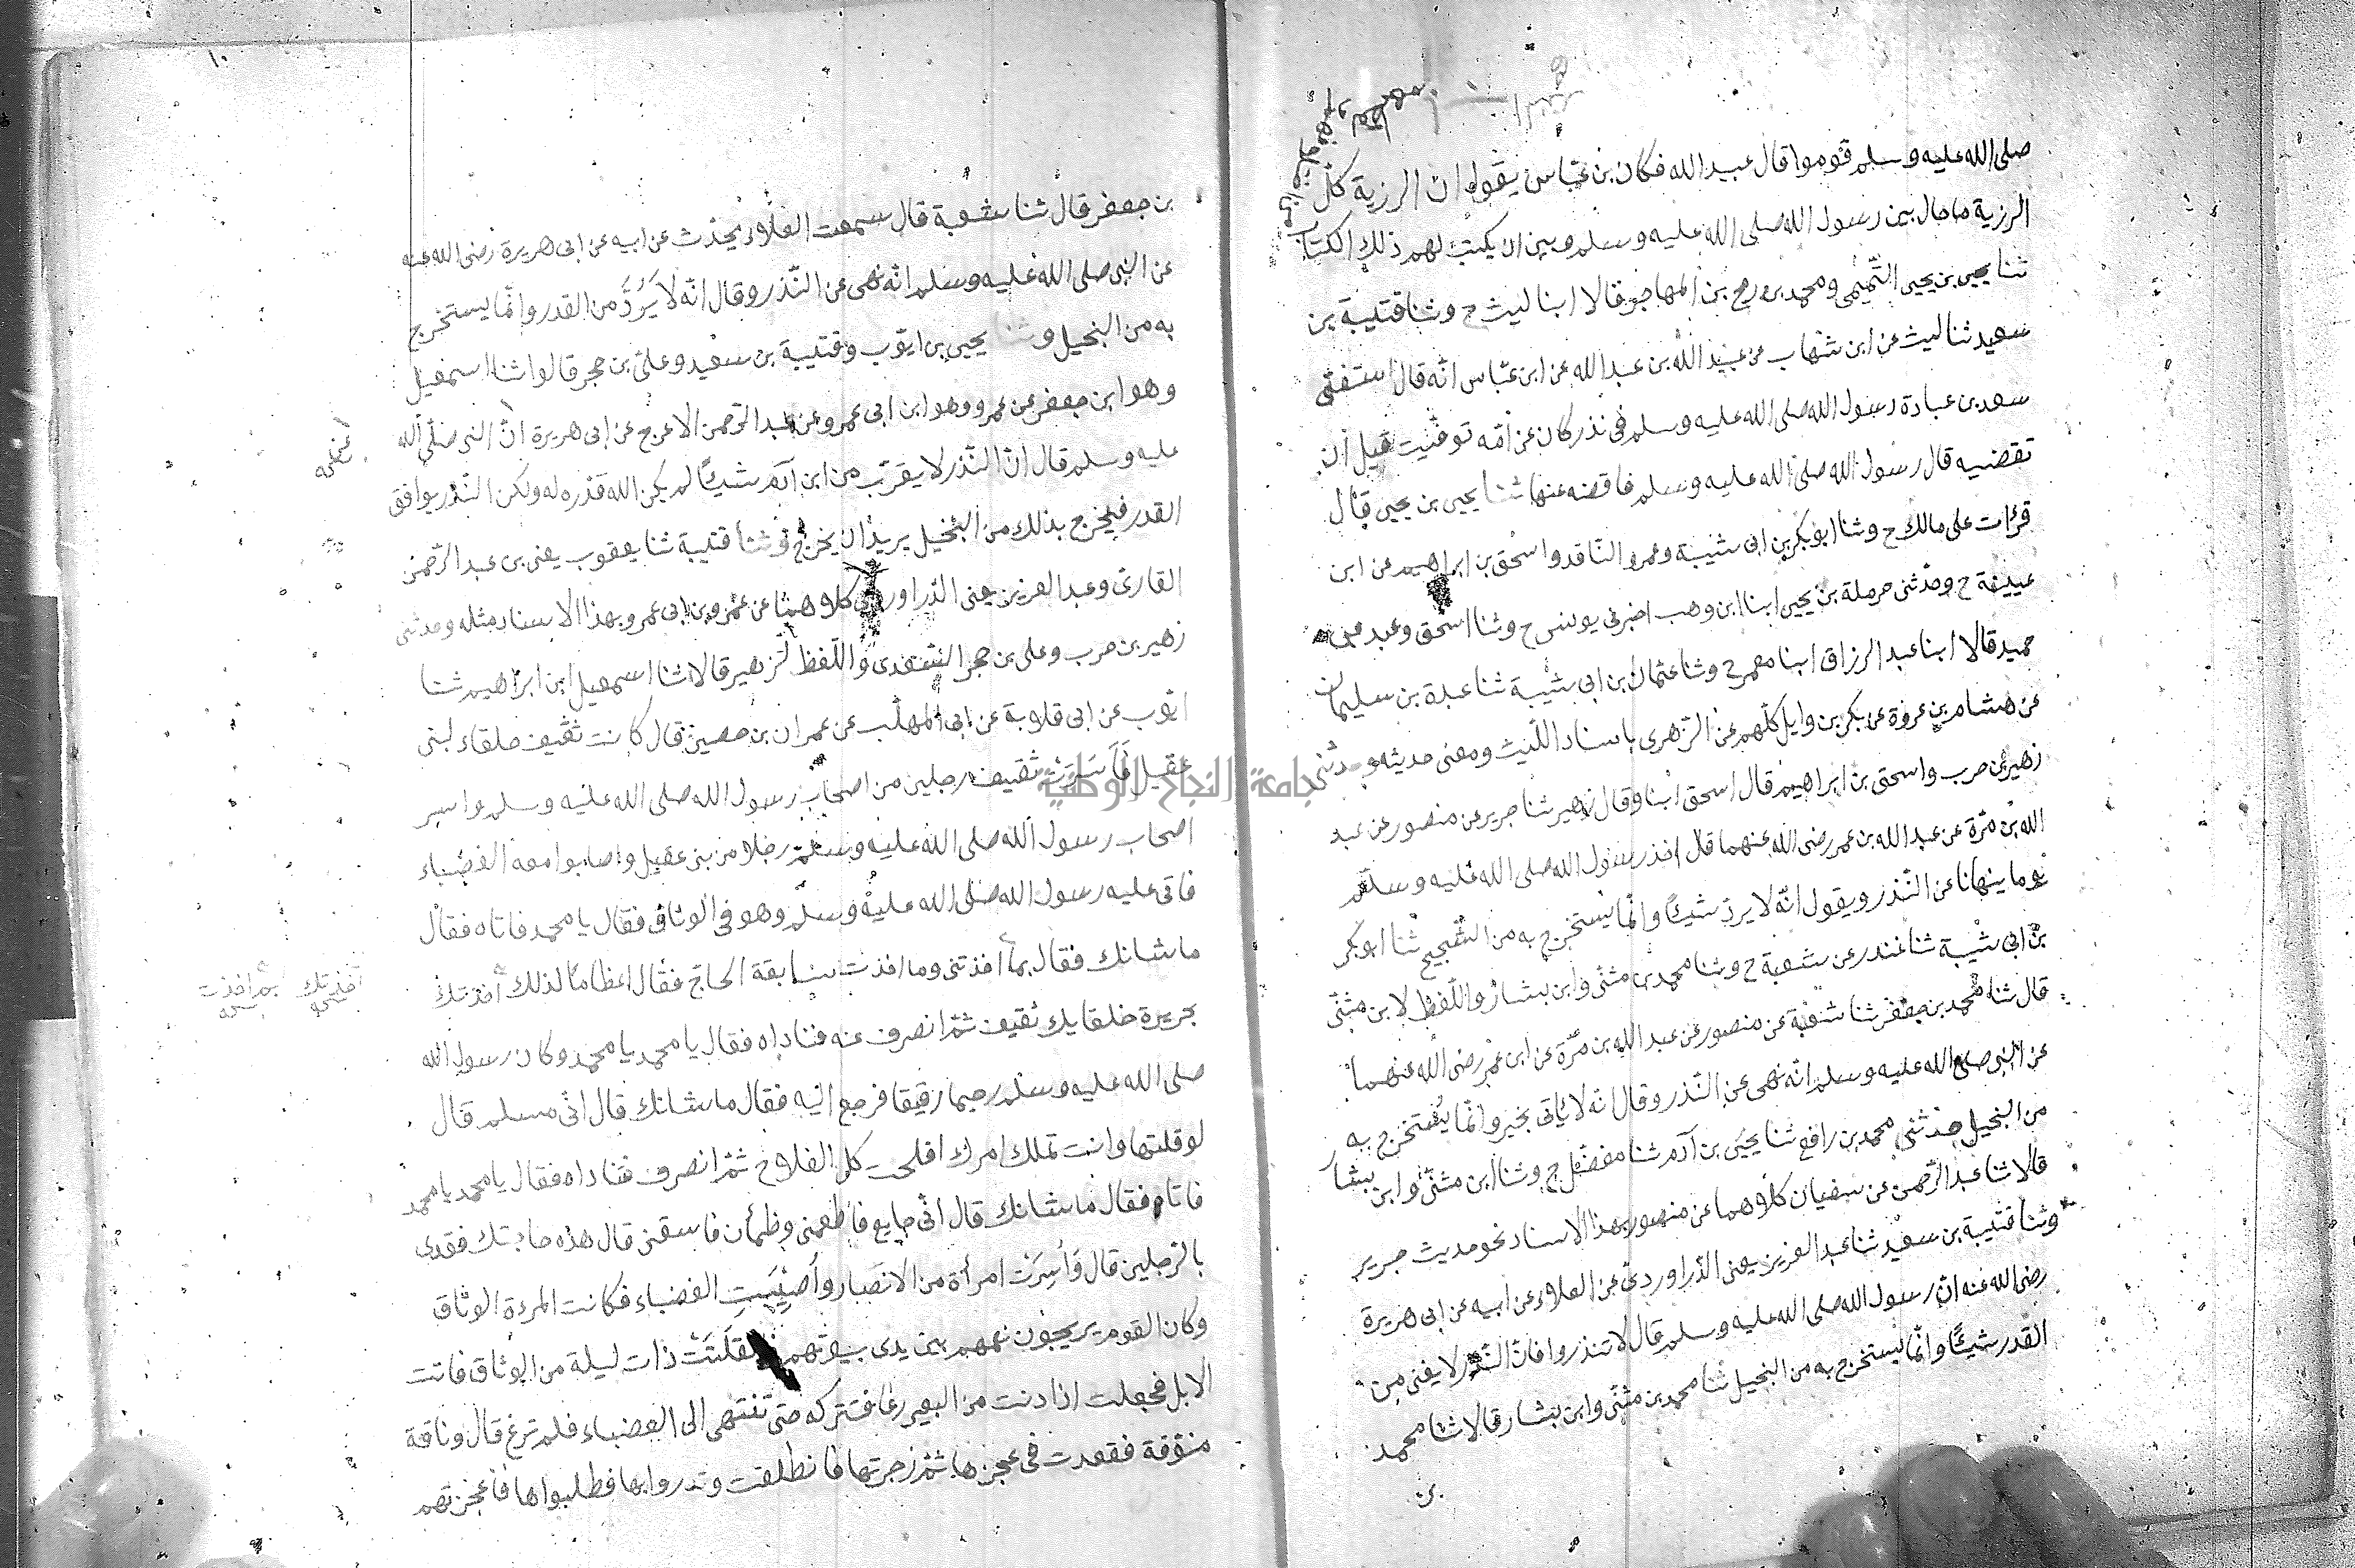 صلى الله عليه وسلم قوموا قال عبيد الله فكان بن عباس يقول ان الرزية كل
الرزية ما حال بين رسول الله صلى الله عليه وسلم وبين ان يكتب لهم ذلك الكتاب
من اختلافهم ولغطهم
ثنا يحيى بن يحيى التميمى ومحمد بن رمح بن المهاجر قالا ابنا ليث ح وثنا قتيبة بن
سعيد ثنا ليث عن ابن شهاب عن عبيد الله بن عبد الله عن ابن عباس انه قال استفتى
سعد بن عبادة رسول الله صلى الله عليه وسلم فى نذر كان عن امه توفيت قبل ان
تقضيه قال رسول الله صلى الله عليه وسلم فاقضه عنها ثنا يحيى بن يحيى قال
قرأت على مالك ح وثنا ابو بكر بن ابى شيبة وعمرو الناقد واسحق بن ابراهيم عن ابن
عيينة ح وحدثنى حرملة بن يحيى ابنا ابن وهب اخبرنى يونس ح وثنا اسحق وعبد بن
حميد قالا ابنا عبد الرزاق ابنا معمر ح وثنا عثمان بن ابى شيبة ثنا عبدة بن سليمان
عن هشام بن عروة عن بكر بن وايل كلهم عن الزهرى باسناد الليث ومعنى حديثه وحدثنى
زهير بن حرب واسحق بن ابراهيم قال اسحق ابنا وقال زهير ثنا جرير عن منصور عن عبد
الله بن مرة عن عبد الله بن عمر رضى الله عنهما قال اخذ رسول الله صلى الله عليه وسلم
يوما ينهانا عن النذر ويقول انه لا يرد شيئا وانما يستخرج به من الشحيح ثنا ابو بكر
بن ابى شيبة ثنا غندر عن شعبة ح وثنا محمد بن مثنى وابن بشار واللفظ لابن مثنى
قال ثنا محمد بن جعفر ثنا شعبة عن منصور عن عبد الله بن مرة عن ابن عمر رضى الله عنهما
عن النبى صلى الله عليه وسلم انه نهى عن النذر وقال انه لا ياتى بخير وانما يستخرج به
من البخيل حدثنى محمد بن رافع ثنا يحيى بن آدم ثنا مفضل ح وثنا ابن مثنى وابن بشار
قالا ثنا عبد الرحمن عن سفيان كلاهما عن منصور بهذا الاسناد نحو حديث جرير
وثنا قتيبة بن سعيد ثنا عبد العزيز يعنى الدراوردى عن العلاء عن ابيه عن ابى هريرة
رضى الله عنه ان رسول الله صلى الله عليه وسلم قال لا تنذروا فان النذر لا يغنى من
القدر شيئا وانما يستخرج به من البخيل ثنا محمد بن مثنى وابن بشار قالا ثنا محمد
بن
١٠
بن جعفر قال ثنا شعبة قال سمعت العلاء يحدث عن ابيه عن ابى هريرة رضى الله عنه
عن النبى صلى الله عليه وسلم انه نهى عن النذر وقال انه لا يَرُدُّ من القدر وانما يستخرج
به من البخيل وثنا يحيى بن ايوب وقتيبة بن سعيد وعلى بن حجر قالوا ثنا اسمعيل
وهو ابن جعفر عن عمرو وهو ابن ابى عمرو عن عبد الرحمن الاعرج عن ابى هريرة ان النبى صلى الله
عليه وسلم قال ان النذر لا يقرب من ابن آدم شيئا لم يكن الله قدره له ولكن النذر يوافق
القدر فيخرج بذلك من البخيل يريد ان يخرج وثنا قتيبة ثنا يعقوب يعنى بن عبد الرحمن
القارى وعبد العزيز يعنى الدراوردى كلاهما عن عمرو بن ابى عمرو بهذا الاسناد مثله وحدثنى
زهير بن حرب وعلى بن حجر السعدى واللفظ لزهير قالا ثنا اسمعيل ابن ابراهيم ثنا
ايوب عن ابى قلابة عن ابى المهلب عن عمران بن حصين قال كانت ثقيف حلفاء لبنى
عقيل فَأَسَرَتْ ثقيف رجلين من اصحاب رسول الله صلى الله عليه وسلم واسر
اصحاب رسول الله صلى الله عليه وسلم رجلا من بنى عقيل واصابوا معه العضباء
فاتى عليه رسول الله صلى الله عليه وسلم وهو فى الوثاق فقال يا محمد فاتاه فقال
ما شانك فقال بما اخذتنى وما اخذت سابقة الحاج فقال اعظاما لذلك اخذتك
اخذتك نسخه
بم اخذت نسخه
بجريرة حلفايك ثقيف ثم انصرف عنه فناداه فقال يا محمد يا محمد وكان رسول الله
صلى الله عليه وسلم رحيما رقيقا فرجع اليه فقال ما شانك قال انى مسلم قال
لو قلتها وانت تملك امرك افلحت كل الفلاح ثم انصرف فناداه فقال يا محمد يا محمد
فاتاه فقال ما شانك قال انى جايع فاطعمنى وظمأن فاسقنى قال هذه حاجتك ففدى
بالرجلين قال وَأُسِرَتْ امرأة من الانصار وأُصِيْبَتِ العضباء فكانت المرءة الوثاق
وكان القوم يريحون نعمهم بين يدى بيوتهم فانفلتت ذات ليلة من الوثاق فاتت
الابل فجعلت اذا دنت من البعير رغا فتتركه حتى تنتهى الى العضباء فلم ترغ قال وناقة
منوقة فقعدت فى عجزها ثم زجرتها فانطلقت وندروا بها فطلبوها فاعجزتهم
جامعة النجاح الوطنية